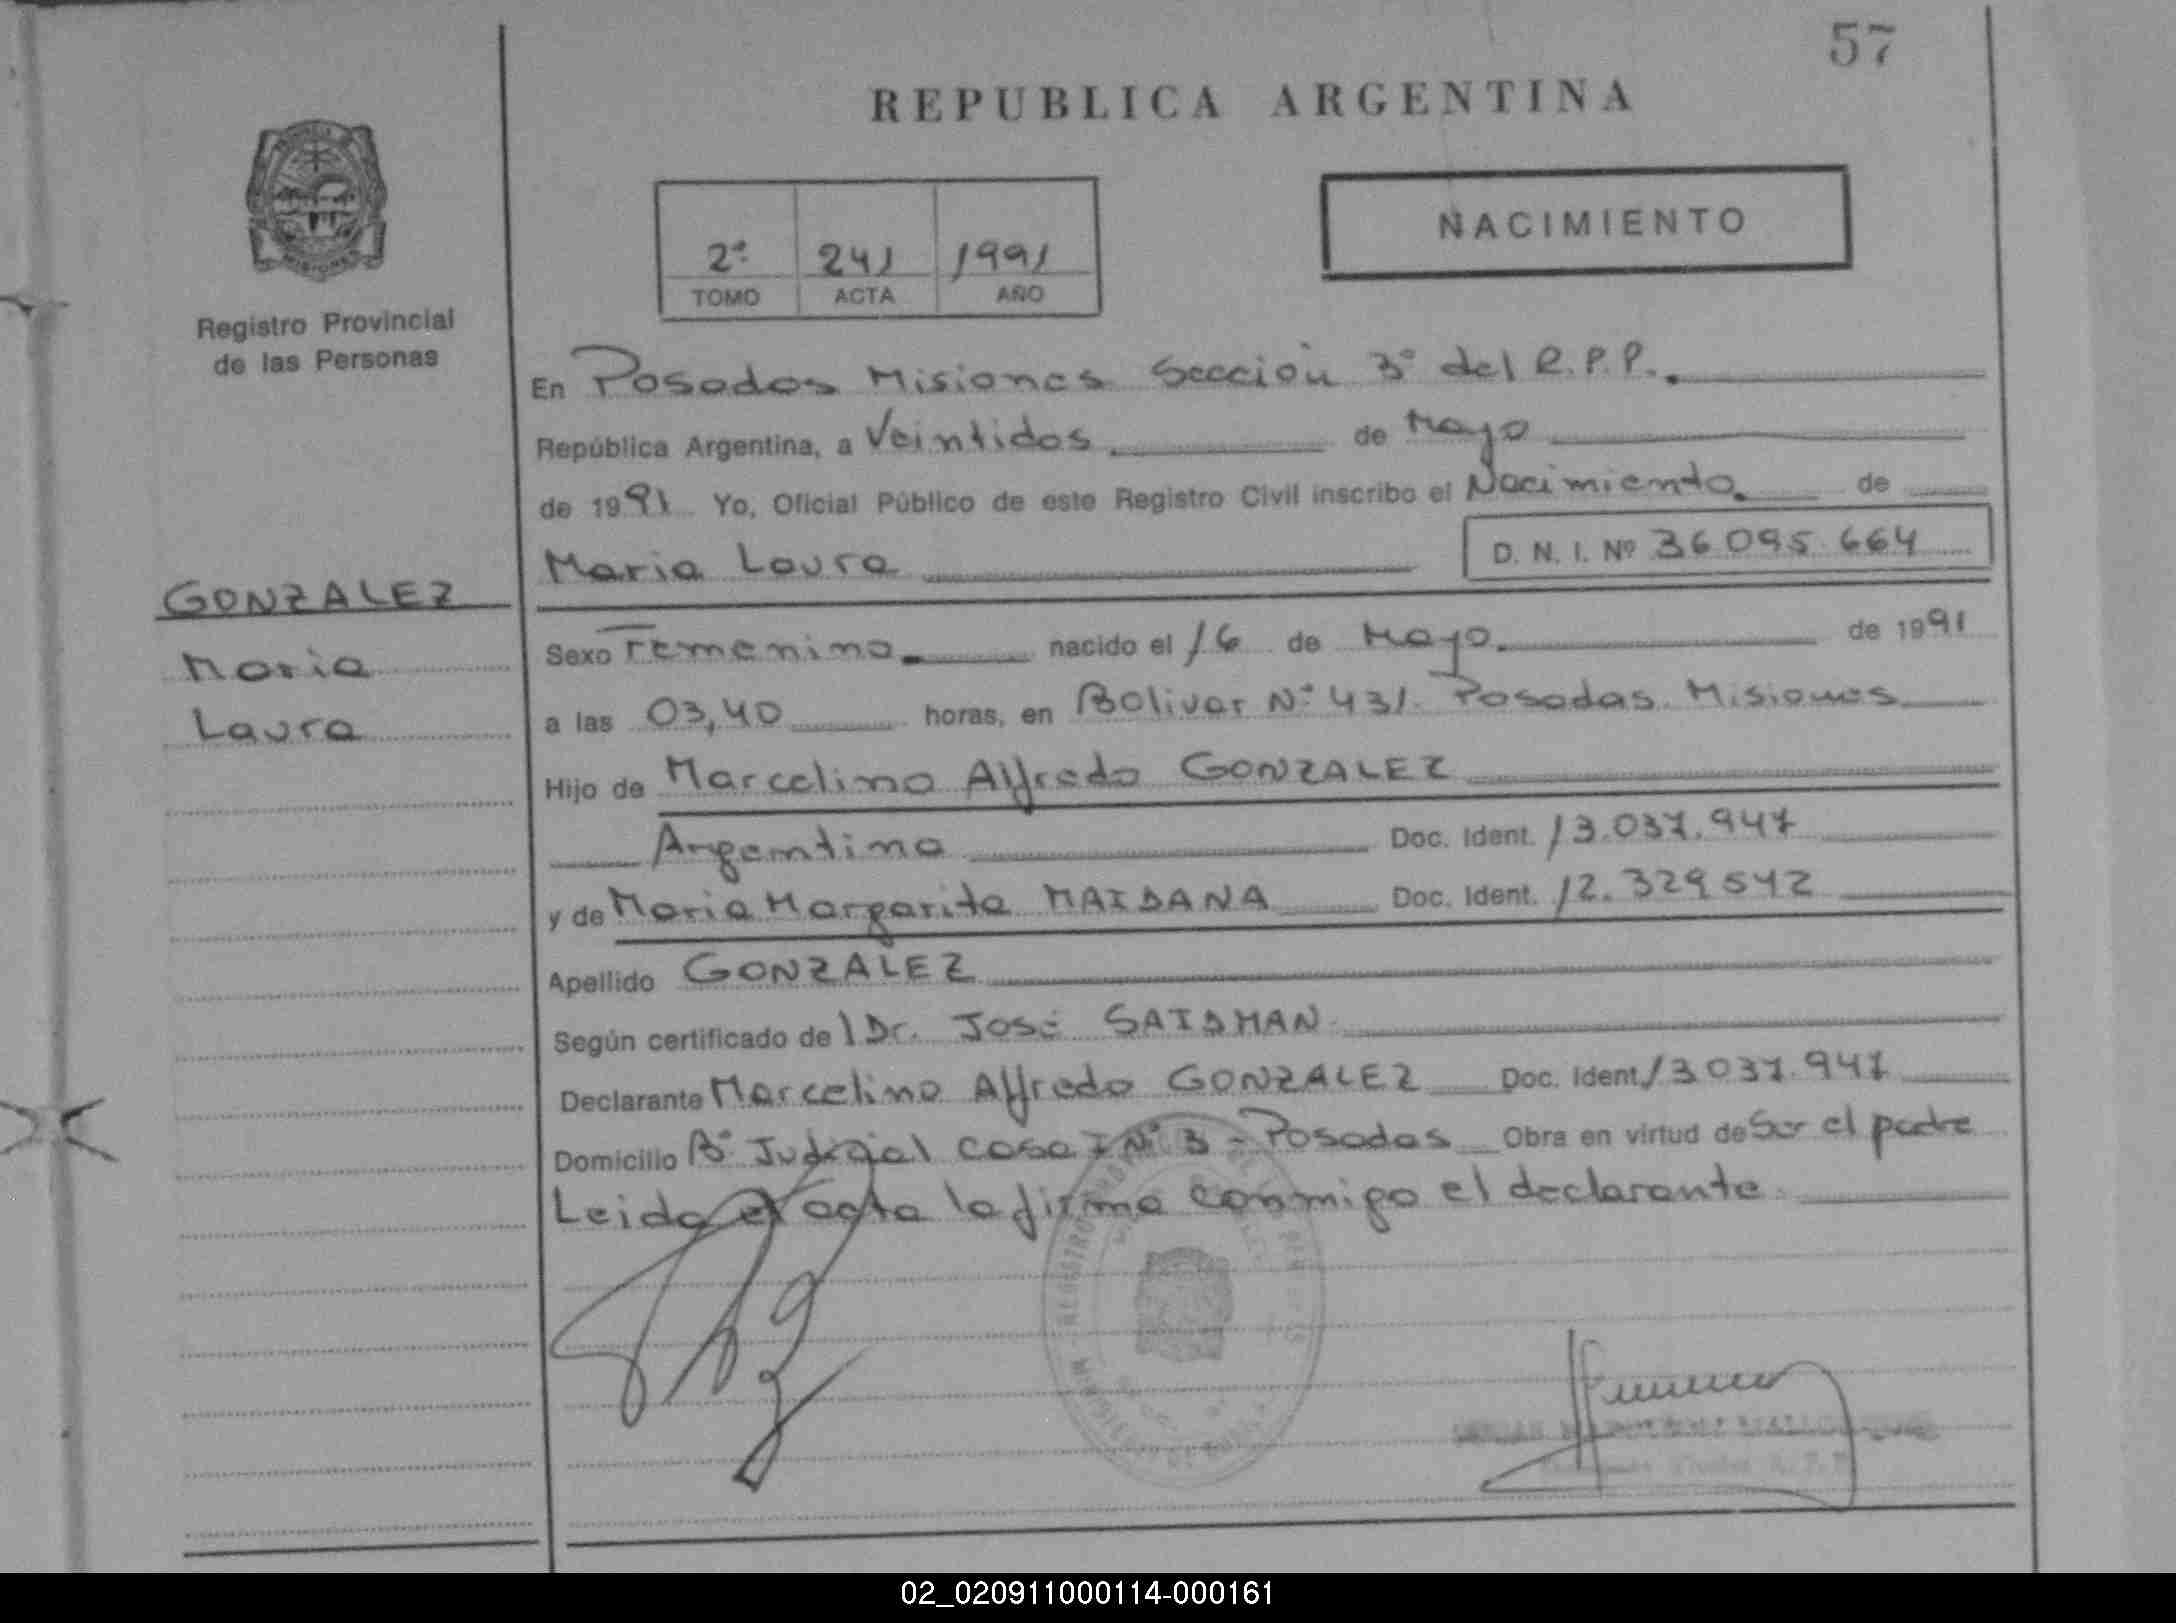 57
REPUBLICA ARGENTINA
NACIMIENTO
2º 241 1991
TOMO ACTA AÑO
Registro Provincial
de las Personas
En Posadas Misiones Sección 3º del R.P.P.
República Argentina, a Veintidos de Mayo
de 1991 Yo, Oficial Público de este Registro Civil inscribo el Nacimiento de
Maria Laura D. N. I. Nº 36 095 664
GONZALEZ
Maria
Laura
Sexo Femenino nacido el 16 de Mayo de 1991
a las 03,40 horas, en Bolivar Nº 431. Posadas. Misiones
Hijo de Marcelino Alfredo GONZALEZ
Argentino Doc. Ident. 13.037.947
y de Maria Margarita MAIDANA Doc. Ident. 12.329542
Apellido GONZALEZ
Según certificado del Dr. José SAIDMAN
Declarante Marcelino Alfredo GONZALEZ Doc. Ident. 13037.947
Domicilio Bº Judicial casa Nº 3 - Posadas Obra en virtud de Ser el padre
Leida el acta la firma conmigo el declarante
02_020911000114-000161